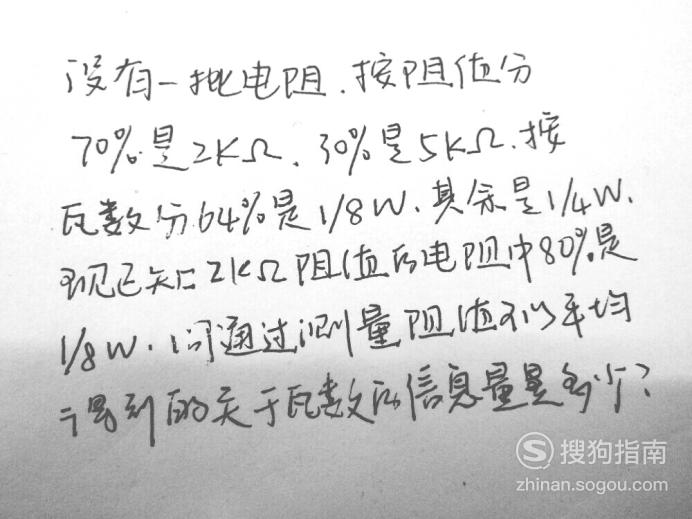 没有一批电阻,按阻值分
70%是2KΩ,30%是5KΩ,按
瓦数分64%是1/8W,其余是1/4W,
现已知2KΩ阻值的电阻中80%是
1/8W,问通过测量阻值可以平均
得到的关于瓦数的信息量是多少?
S 搜狗指南
zhinan.sogou.com